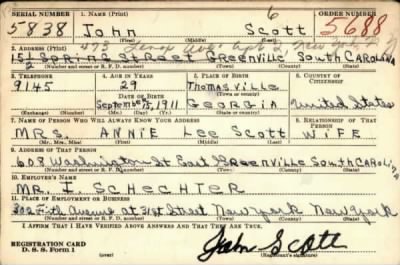 SERIAL NUMBER 1. NAME (Print) ORDER NUMBER
5838 John Scott 6 5688
(First) (Middle) (Last)
473 Lenox Ave Apt 2 New York N.Y.
2. ADDRESS (Print)
151 Spring Street Greenville South CAROLINA
(Number and street or R. F. D. number) (Town) (County) (State)
3. TELEPHONE 4. AGE IN YEARS 5. PLACE OF BIRTH 6. COUNTRY OF CITIZENSHIP
9145 29 Thomasville
DATE OF BIRTH (Town or county)
September 15, 1911 GEORGIA United States
(Exchange) (Number) (Mo.) (Day) (Yr.) (State or country)
7. NAME OF PERSON WHO WILL ALWAYS KNOW YOUR ADDRESS 8. RELATIONSHIP OF THAT PERSON
MRS. ANNIE Lee Scott WiFE
(Mr., Mrs., Miss) (First) (Middle) (Last)
9. ADDRESS OF THAT PERSON
608 Washington St East Greenville South CAROLINA
(Number and street or R. F. D. number) (Town) (County) (State)
10. EMPLOYER'S NAME
MR. I. SCHECHTER
11. PLACE OF EMPLOYMENT OR BUSINESS
302 Fifth Avenue AT 31st Street New York New York
(Number and street or R. F. D. number) (Town) (County) (State)
I AFFIRM THAT I HAVE VERIFIED ABOVE ANSWERS AND THAT THEY ARE TRUE.
REGISTRATION CARD
D. S. S. Form 1 John Scott